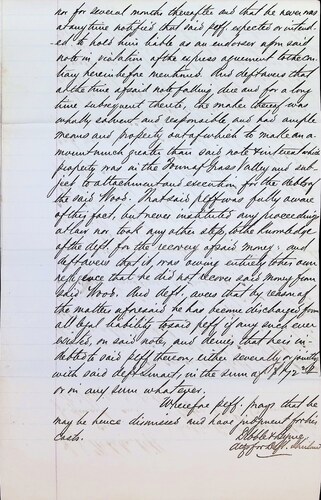 nor for several months thereafter and that he never was
at any time notified that said peff expected or intend-
ed to hold him liable as an endorser upon said
note in violation of the express agreement to the con-
trary herein before mentioned. And deft avers that
at the time of said note falling due and for a long
time subsequent thereto, the maker thereof was
wholly solvent and responsible and had ample
means and property out of which to make an a-
mount much greater than said note & interest which
property was in the Town of Grass Valley and sub-
ject to attachment and execution for the debts of
the said Wood. That said peff was fully aware
of this fact, but never instituted any proceedings
at law nor took any other step, to the knowledge
of the deft. for the recovery of said money: and
deft avers that it was owing entirely to his own
negligence that he did not recover said money from
said Wood. And deft. avers that by reason of
the matters aforesaid he has become discharged from
all legal liability to said peff if any such ever
existed, on said note, and denies that he is in-
debted to said peff thereon, either severally or jointly
with said deft Smart, in the sum of $
or in any sum whatever.
Wherefore peff. prays that he
may be hence dismissed and have judgment for his
costs.
Atty for Deft.